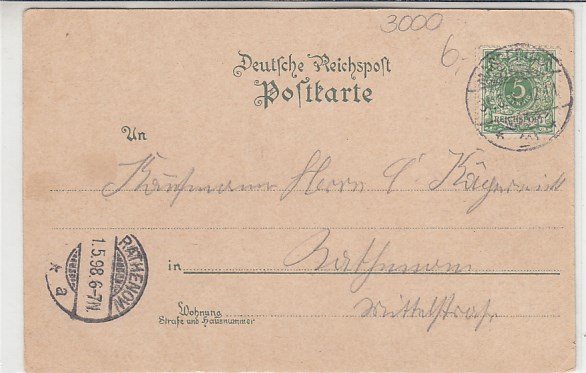 3000
6,
Deutsche Reichspost
Postkarte
5
REICHSPOST
An
Kaufmann Herrn C
in Rathenow
Mittelstraße
Wohnung
Straße und Hausnummer
RATHENOW
1.5.98 6-7N.
* a